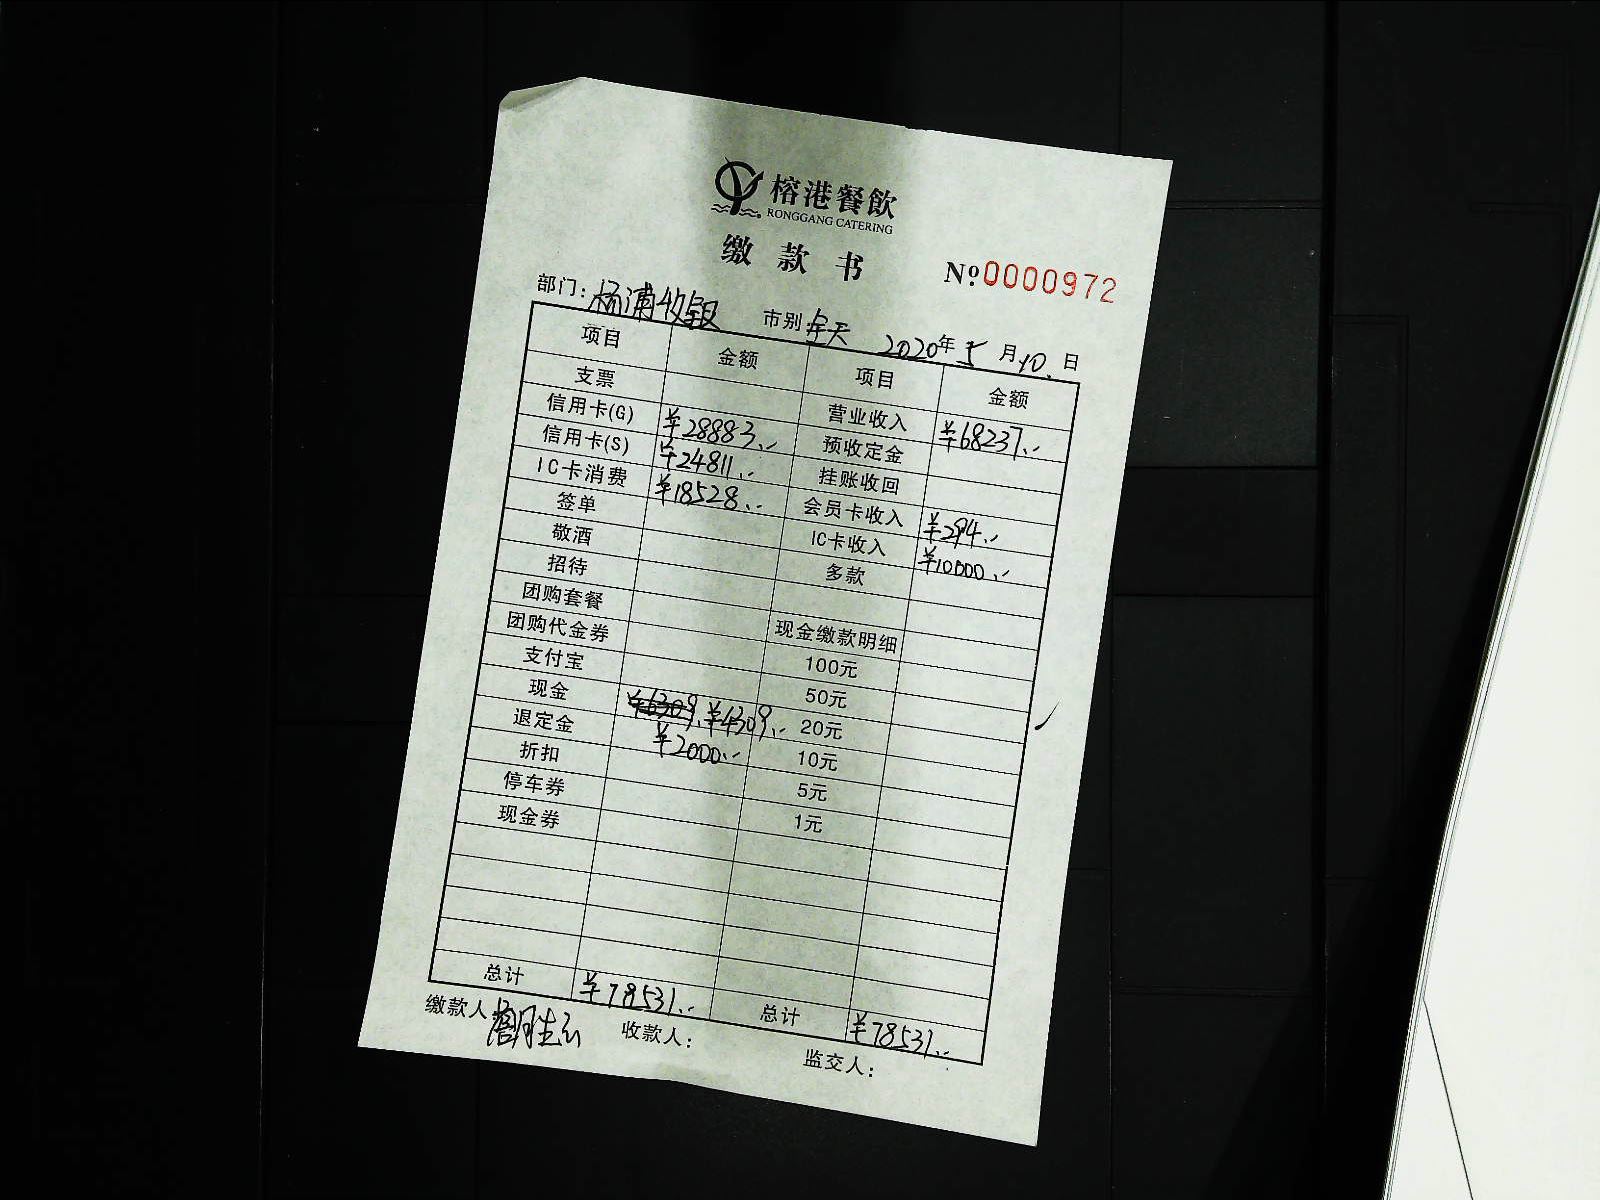 榕港餐飲
RONGGANG CATERING
缴款书
№0000972
部门：杨浦收银 市别 全天 2020年5月10日
项目 金额 项目 金额
支票 营业收入 ¥68237.-
信用卡(G) ¥28883.- 预收定金
信用卡(S) ¥24811.- 挂账收回
IC卡消费 ¥18528.- 会员卡收入 ¥294.-
签单 IC卡收入 ¥10000.-
敬酒 多款
招待
团购套餐 现金缴款明细
团购代金券 100元
支付宝 50元
现金 ¥6309 ¥4309.- 20元
退定金 ¥2000.- 10元
折扣 5元
停车券 1元
现金券
总计 ¥78531.- 总计 ¥78531.-
缴款人 收款人： 监交人：